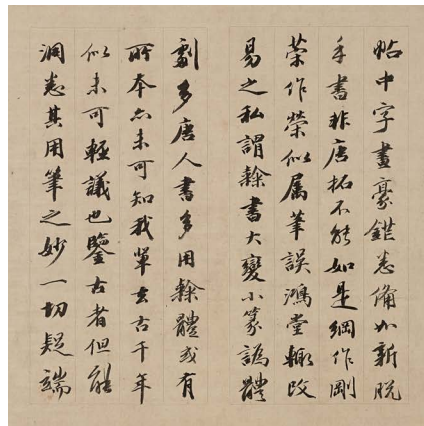 帖中字畫豪鋩悉備如新脫
手書非唐拓不能如是綱作剛
榮作榮似属筆誤鴻堂輒改
易之私謂隸書大變小篆譌體
劇多唐人書多用隸體或有
所本亦未可知我輩去古千年
似未可輕議也鑒古者但能
洞悉其用筆之妙一切疑端